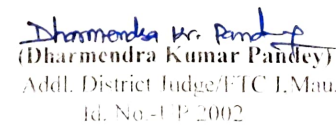 Dharmendra Kr. Pandey
(Dharmendra Kumar Pandey)
Addl. District Judge/FTC I,Mau.
Id. No.-UP 2002